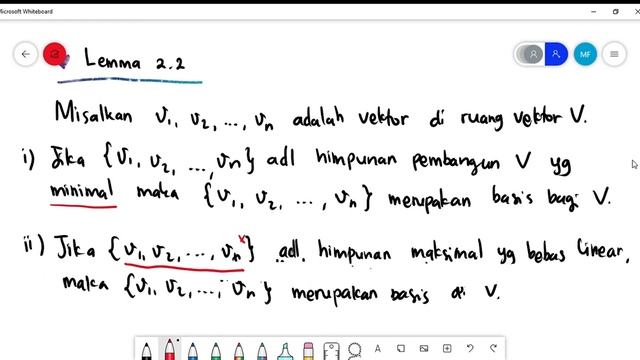 Microsoft Whiteboard
MF
Lemma 2.2
Misalkan v₁, v₂, ..., vₙ adalah vektor di ruang vektor V.
i) Jika {v₁, v₂, ..., vₙ} adl himpunan pembangun V yg
minimal maka {v₁, v₂, ..., vₙ} merupakan basis bagi V.
ii) Jika {v₁, v₂, ..., vₙ} adl. himpunan maksimal yg bebas linear,
maka {v₁, v₂, ..., vₙ} merupakan basis di V.
A